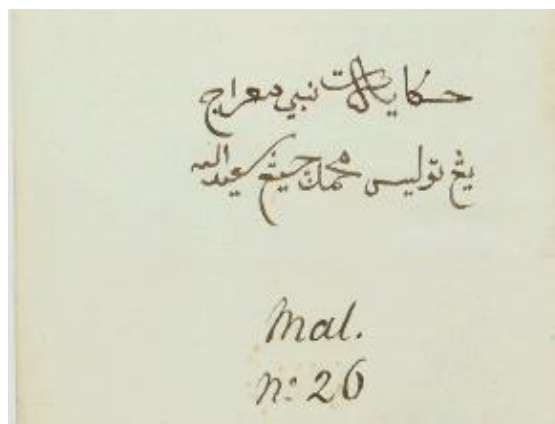 حكاية نبي معراج
يڠ توليس محمد چيڠ سعيدالله
Mal.
n: 26